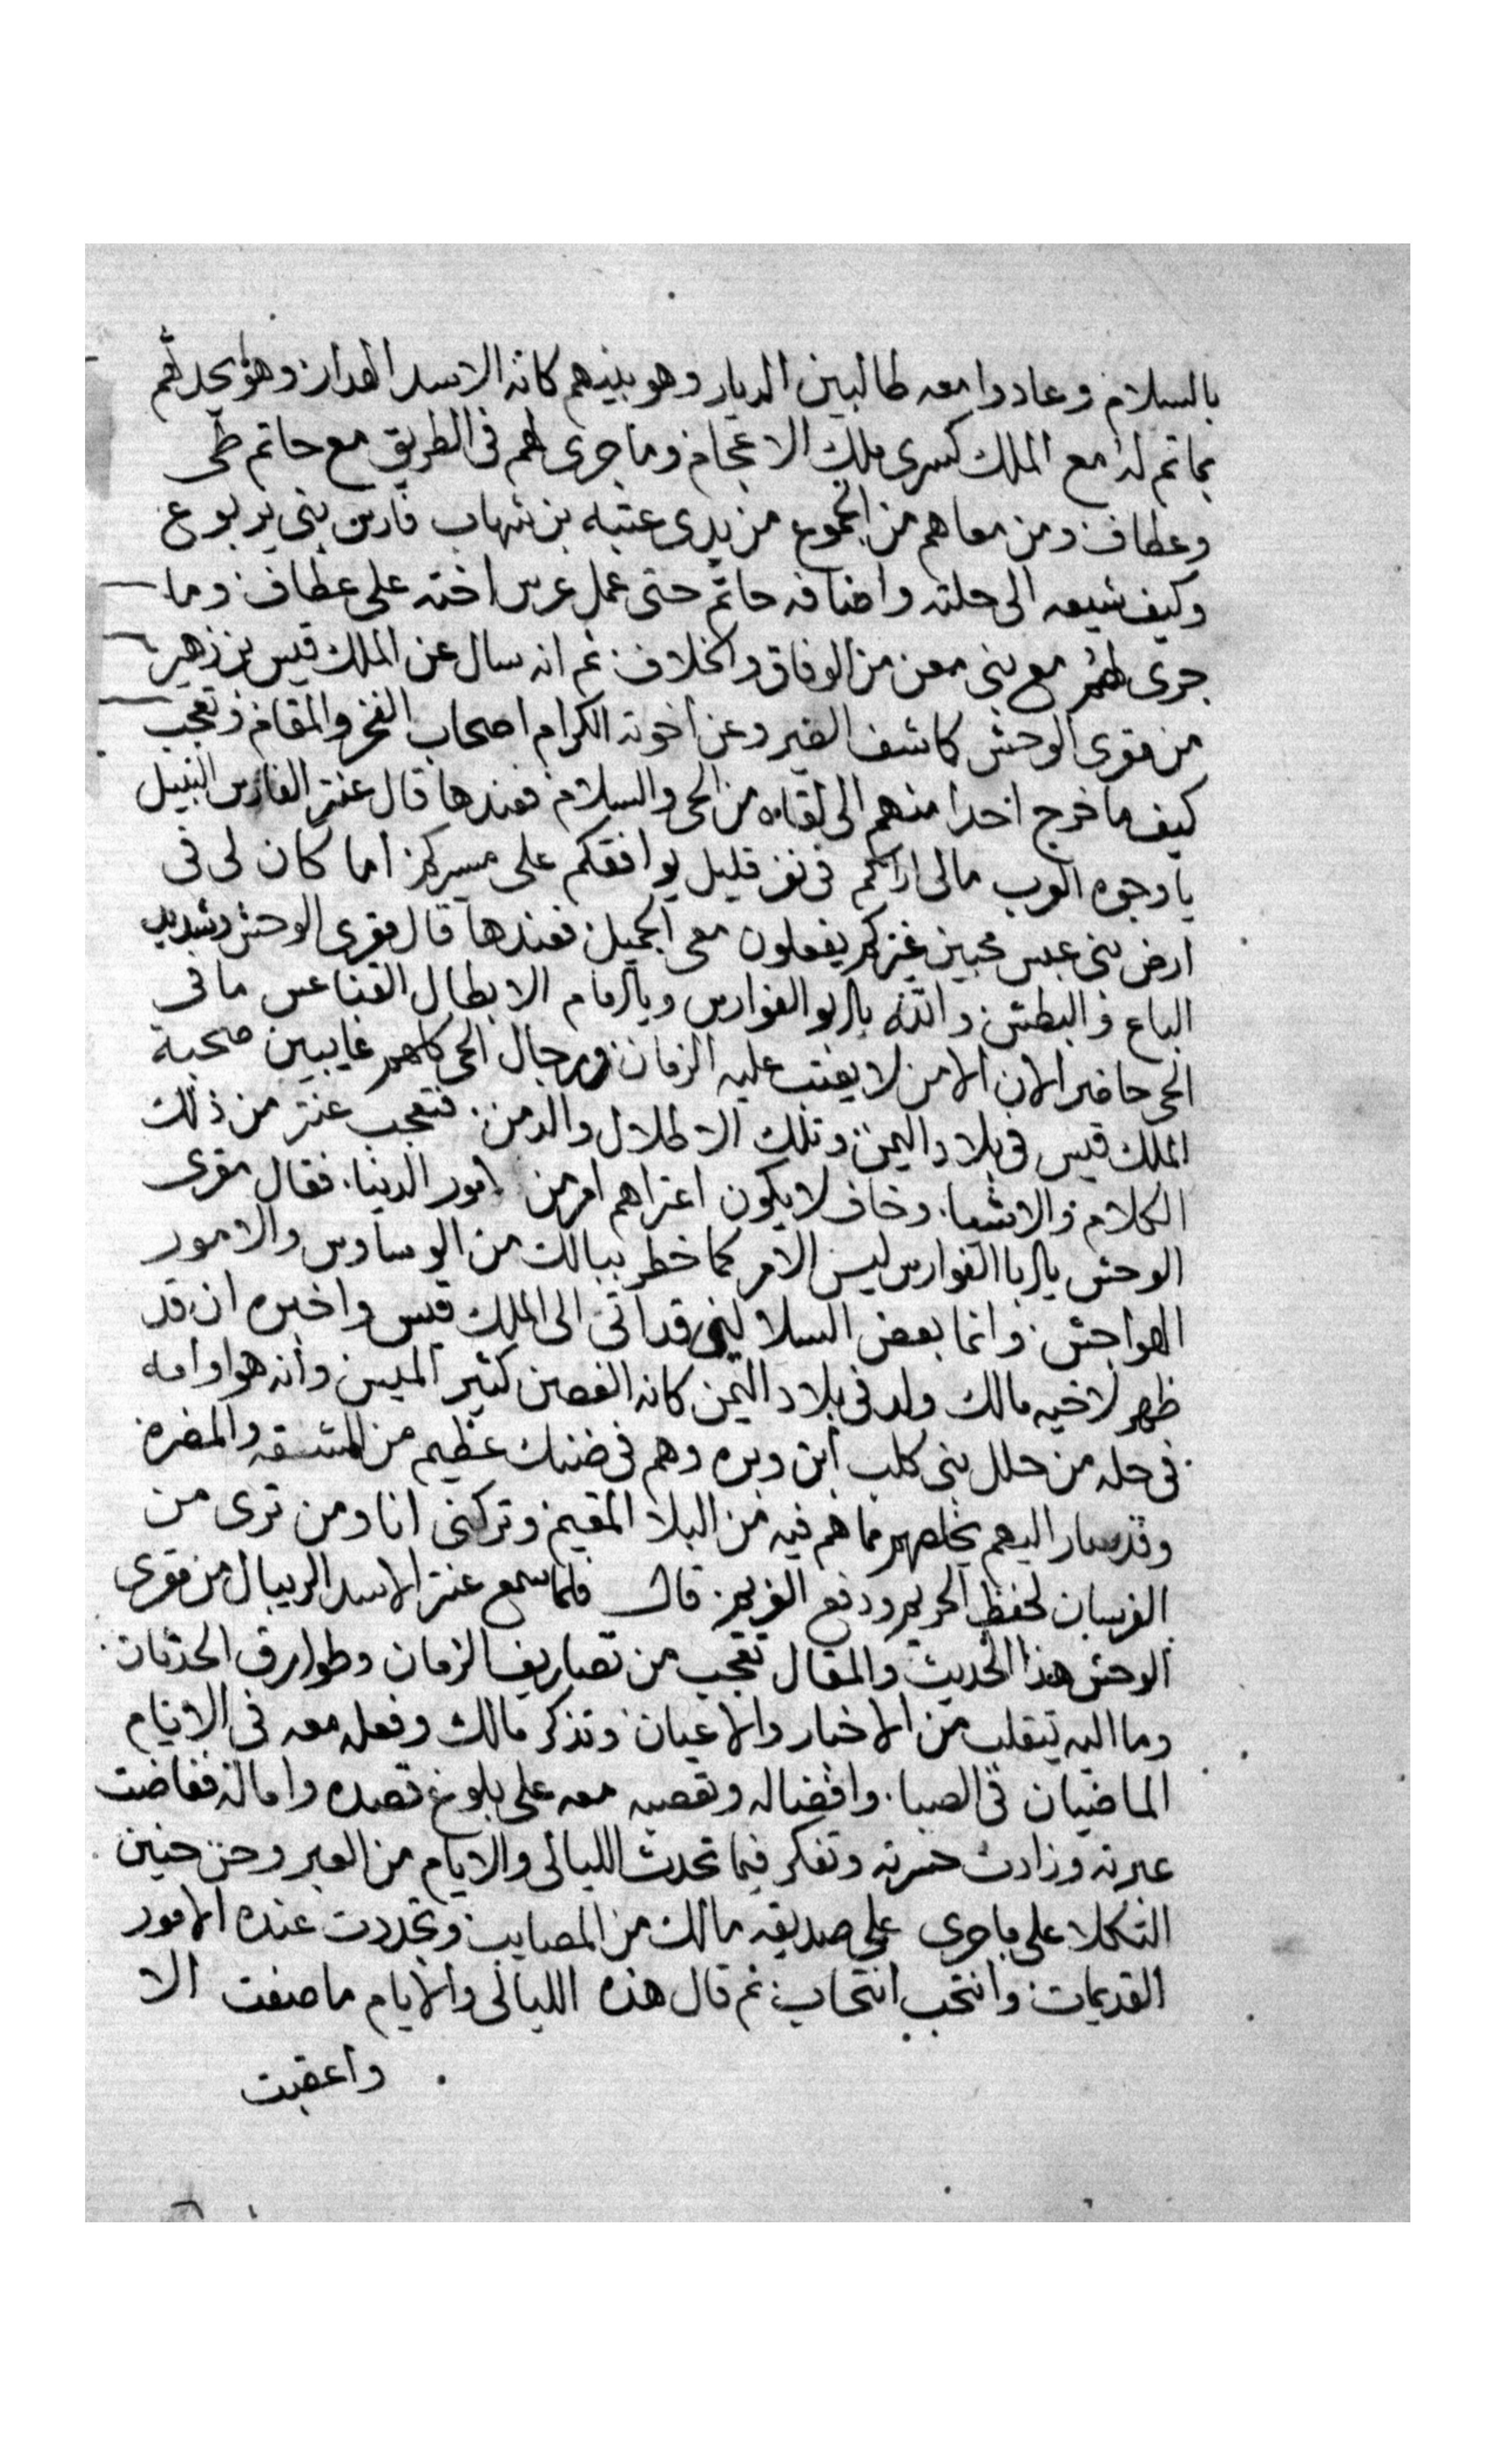 بالسلام وعادوا معه طالبين الديار وهو بينهم كانه الاسد الهدار وهو يحدثهم
بما تم له مع الملك كسرى ملك الاعجام وما جرى لهم فى الطريق مع حاتم طى
وعطاف ومن معاهم من الجموع من يدى عتبه بن شهاب فارس بنى يربوع
وكيف شيعه الى حلته واضافه حاتم حتى عمل عرس اخته على عطاف وما
جرى لهم مع بنى معن من الوفاق والخلاف ثم انه سال عن الملك قيس بن زهير
من مقرى الوحش كاشف الضير وعن اخوته الكرام اصحاب الفخر والمقام وتعجب
كيف ما خرج احدا منهم الى لقاه من الحى والسلام فعندها قال عنتر الفارس النبيل
يا وجوه العرب مالى اراكم فى نفر قليل يوافقكم على مسيركم اما كان لى فى
ارض بنى عبس محبين غيركم يفعلون معى الجميل فعندها قال مقرى الوحش وشديد
الباع والبطش والله يابو الفوارس ويا الابطال القناعس ما فى
الحى حاضر الان الا من لا يعتب عليه الزمان ورجال الحى كلهم غايبين صحبة
الملك قيس فى بلاد اليمن وتلك الاطلال والدمن فتعجب عنتر من ذلك
الكلام والاشيا وخاف لا يكون اعتراهم امر من امور الدنيا فقال مقرى
الوحش يابا الفوارس ليس الامر كما خطر ببالك من الوساوس والامور
الهواجش وانما بعض السلالين قد اتى الى الملك قيس واخبره ان قد
ظهر لاخيه مالك ولد فى بلاد اليمن كانه الغصن كثير الميس وانه هو وامه
فى حله من حلل بنى كلب ابن وبره وهم فى ضنك عظيم من المشقه والمضره
وقد سار اليهم يخلصهم مما هم فيه من البلا المقيم وتركنى انا ومن ترى من
الفرسان لحفظ الحريم ودفع الغريم قال فلما سمع عنتر الاسد الريبال من مقرى
الوحش هذا الحديث والمقال تعجب من تصاريف الزمان وطوارق الحدثان
وما اليه تيقلب من الاخبار والاعيان وتذكر مالك وفعله معه فى الايام
الماضيان فى الصبا وافضاله وتعصبه معه على بلوغ قصده واماله ففاضت
عبرته وزادت حسرته وتفكر فيما تحدث الليالى والايام من العبر وحن حنين
الثكلا على ما جرى على صديقه مالك من المصايب وتجددت عنده الامور
القديمات وانتحب انتحاب ثم قال هذه الليالى والايام ما صفت الا
واعقبت